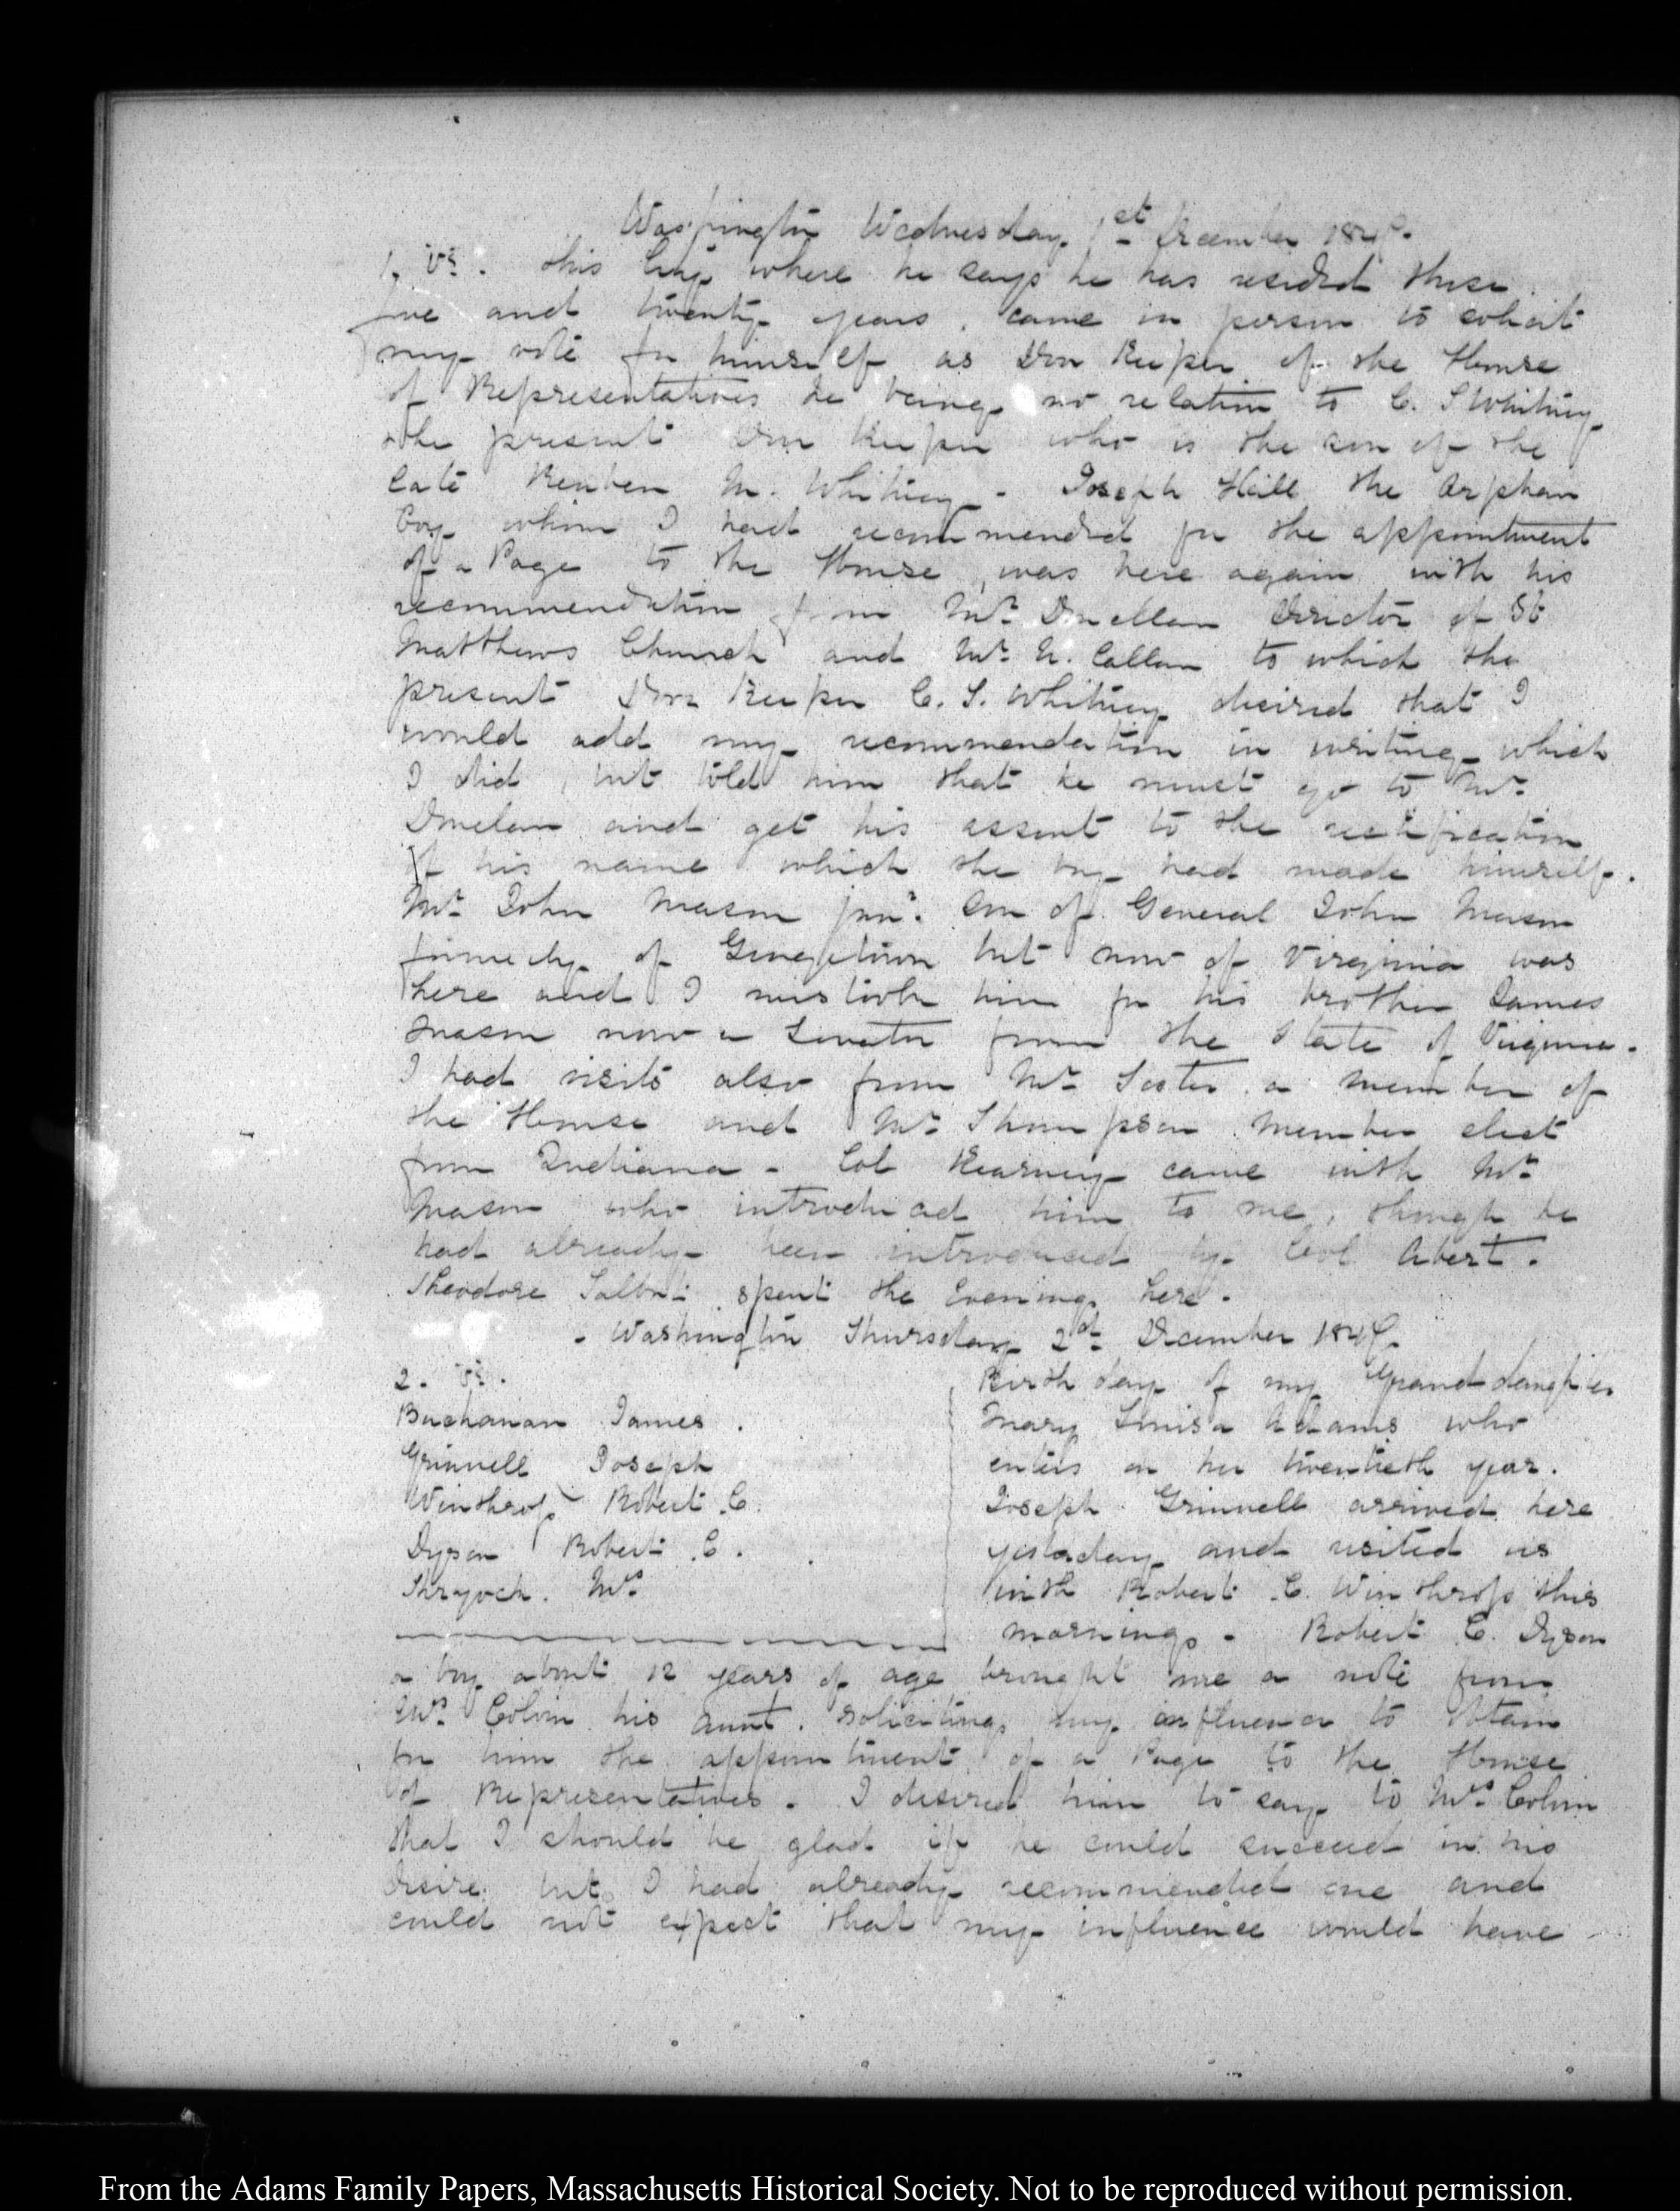 Washington Wednesday 1st December 1847.
1. VI. this City where he says he has resided these
five and twenty years, came in person to solicit
my vote for himself as Door Keeper of the House
of Representatives he being no relation to C. S Whitney
the present Door Keeper who is the son of the
late Reuben M. Whitney - Joseph Hill the Orphan
boy whom I had recommended for the appointment
of a Page to the House, was here again with his
recommendation from Mr. Donellan Director of St
Matthews Church and Mr. N. Callan to which the
present Door Keeper C. S. Whitney desired that I
would add my recommendation in writing which
I did, but told him that he must go to Mr.
Donelan and get his assent to the rectification
of his name which the boy had made himself.
Mr. John Mason junr. Son of General John Mason
formerly of Georgetown but now of Virginia was
here and I mistook him for his brother James
Mason now a Senator from the State of Virginia.
I had visits also from Mr. a member of
the House and Mr. Thompson member elect
from Indiana - Col Kearney came with Mr.
Mason who introduced him to me, though he
had already been introduced by Col Abert.
Theodore Talbot spent the Evening here.
- Washington Thursday 2d. December 1847.
2. VI.
Buchanan James.
Grinnell Joseph
Winthrop Robert C.
Dyson Robert C.
Shryock. Mrs
Birth day of my Grand daughter
Mary Louisa Adams who
enters on her twentieth year.
Joseph Grinnell arrived here
yesterday and visited us
with Robert C. Winthrop this
morning - Robert C. Dyson
a boy about 12 years of age brought me a note from
Mrs. Colvin his aunt. soliciting my influence to obtain
for him the appointment of a Page to the House
of Representatives. I desired him to say to Mrs. Colvin
that I should be glad if he could succeed in his
desire but I had already recommended one and
could not expect that my influence would have
From the Adams Family Papers, Massachusetts Historical Society. Not to be reproduced without permission.